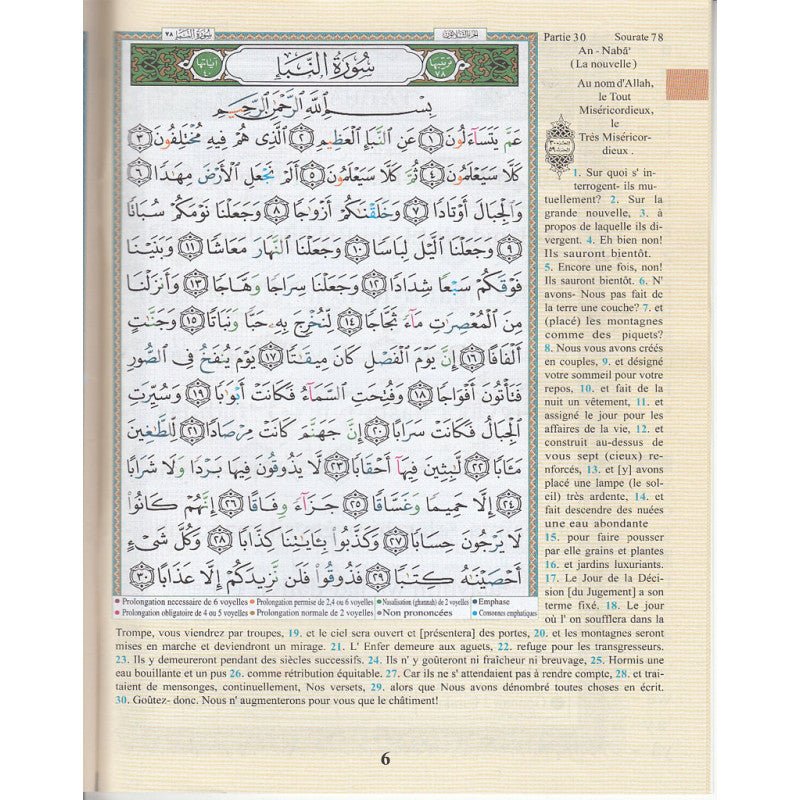 سُورَةُ النَّبَإِ ٧٨
الجزء الثلاثون
آياتها ٤٠
سُورَةُ النَّبَإِ
ترتيبها ٧٨
بِسْمِ ٱللَّهِ ٱلرَّحْمَٰنِ ٱلرَّحِيمِ
عَمَّ يَتَسَآءَلُونَ ١ عَنِ ٱلنَّبَإِ ٱلْعَظِيمِ ٢ ٱلَّذِى هُمْ فِيهِ مُخْتَلِفُونَ ٣
كَلَّا سَيَعْلَمُونَ ٤ ثُمَّ كَلَّا سَيَعْلَمُونَ ٥ أَلَمْ نَجْعَلِ ٱلْأَرْضَ مِهَٰدًا ٦
وَٱلْجِبَالَ أَوْتَادًا ٧ وَخَلَقْنَٰكُمْ أَزْوَٰجًا ٨ وَجَعَلْنَا نَوْمَكُمْ سُبَاتًا
٩ وَجَعَلْنَا ٱلَّيْلَ لِبَاسًا ١٠ وَجَعَلْنَا ٱلنَّهَارَ مَعَاشًا ١١ وَبَنَيْنَا
فَوْقَكُمْ سَبْعًا شِدَادًا ١٢ وَجَعَلْنَا سِرَاجًا وَهَّاجًا ١٣ وَأَنزَلْنَا
مِنَ ٱلْمُعْصِرَٰتِ مَآءً ثَجَّاجًا ١٤ لِّنُخْرِجَ بِهِۦ حَبًّا وَنَبَاتًا ١٥ وَجَنَّٰتٍ
أَلْفَافًا ١٦ إِنَّ يَوْمَ ٱلْفَصْلِ كَانَ مِيقَٰتًا ١٧ يَوْمَ يُنفَخُ فِى ٱلصُّورِ
فَتَأْتُونَ أَفْوَاجًا ١٨ وَفُتِحَتِ ٱلسَّمَآءُ فَكَانَتْ أَبْوَٰبًا ١٩ وَسُيِّرَتِ
ٱلْجِبَالُ فَكَانَتْ سَرَابًا ٢٠ إِنَّ جَهَنَّمَ كَانَتْ مِرْصَادًا ٢١ لِّلطَّٰغِينَ
مَـَٔابًا ٢٢ لَّٰبِثِينَ فِيهَآ أَحْقَابًا ٢٣ لَّا يَذُوقُونَ فِيهَا بَرْدًا وَلَا شَرَابًا
٢٤ إِلَّا حَمِيمًا وَغَسَّاقًا ٢٥ جَزَآءً وِفَاقًا ٢٦ إِنَّهُمْ كَانُوا۟
لَا يَرْجُونَ حِسَابًا ٢٧ وَكَذَّبُوا۟ بِـَٔايَٰتِنَا كِذَّابًا ٢٨ وَكُلَّ شَىْءٍ
أَحْصَيْنَٰهُ كِتَٰبًا ٢٩ فَذُوقُوا۟ فَلَن نَّزِيدَكُمْ إِلَّا عَذَابًا ٣٠
Prolongation necessaire de 6 voyelles Prolongation permise de 2,4 ou 6 voyelles Nasalisation (ghunnah) de 2 voyelles Emphase
Prolongation obligatoire de 4 ou 5 voyelles Prolongation normale de 2 voyelles Non prononcées Consonnes emphatiques
Partie 30 Sourate 78
An - Nabâ'
(La nouvelle)
Au nom d'Allah,
le Tout
Miséricordieux,
le
Très Miséricor-
dieux .
1. Sur quoi s' in-
terrogent- ils mu-
tuellement? 2. Sur la
grande nouvelle, 3. à
propos de laquelle ils di-
vergent. 4. Eh bien non!
Ils sauront bientôt.
5. Encore une fois, non!
Ils sauront bientôt. 6. N'
avons- Nous pas fait de
la terre une couche? 7. et
(placé) les montagnes
comme des piquets?
8. Nous vous avons créés
en couples, 9. et désigné
votre sommeil pour votre
repos, 10. et fait de la
nuit un vêtement, 11. et
assigné le jour pour les
affaires de la vie, 12. et
construit au-dessus de
vous sept (cieux) re-
nforcés, 13. et [y] avons
placé une lampe (le sol-
eil) très ardente, 14. et
fait descendre des nuées
une eau abondante
15. pour faire pousser
par elle grains et plantes
16. et jardins luxuriants.
17. Le Jour de la Déci-
sion [du Jugement] a son
terme fixé. 18. Le jour
où l' on soufflera dans la
Trompe, vous viendrez par troupes, 19. et le ciel sera ouvert et [présentera] des portes, 20. et les montagnes seront
mises en marche et deviendront un mirage. 21. L' Enfer demeure aux aguets, 22. refuge pour les transgresseurs.
23. Ils y demeureront pendant des siècles successifs. 24. Ils n' y goûteront ni fraîcheur ni breuvage, 25. Hormis une
eau bouillante et un pus 26. comme rétribution équitable. 27. Car ils ne s' attendaient pas à rendre compte, 28. et trai-
taient de mensonges, continuellement, Nos versets, 29. alors que Nous avons dénombré toutes choses en écrit.
30. Goûtez- donc. Nous n' augmenterons pour vous que le châtiment!
6